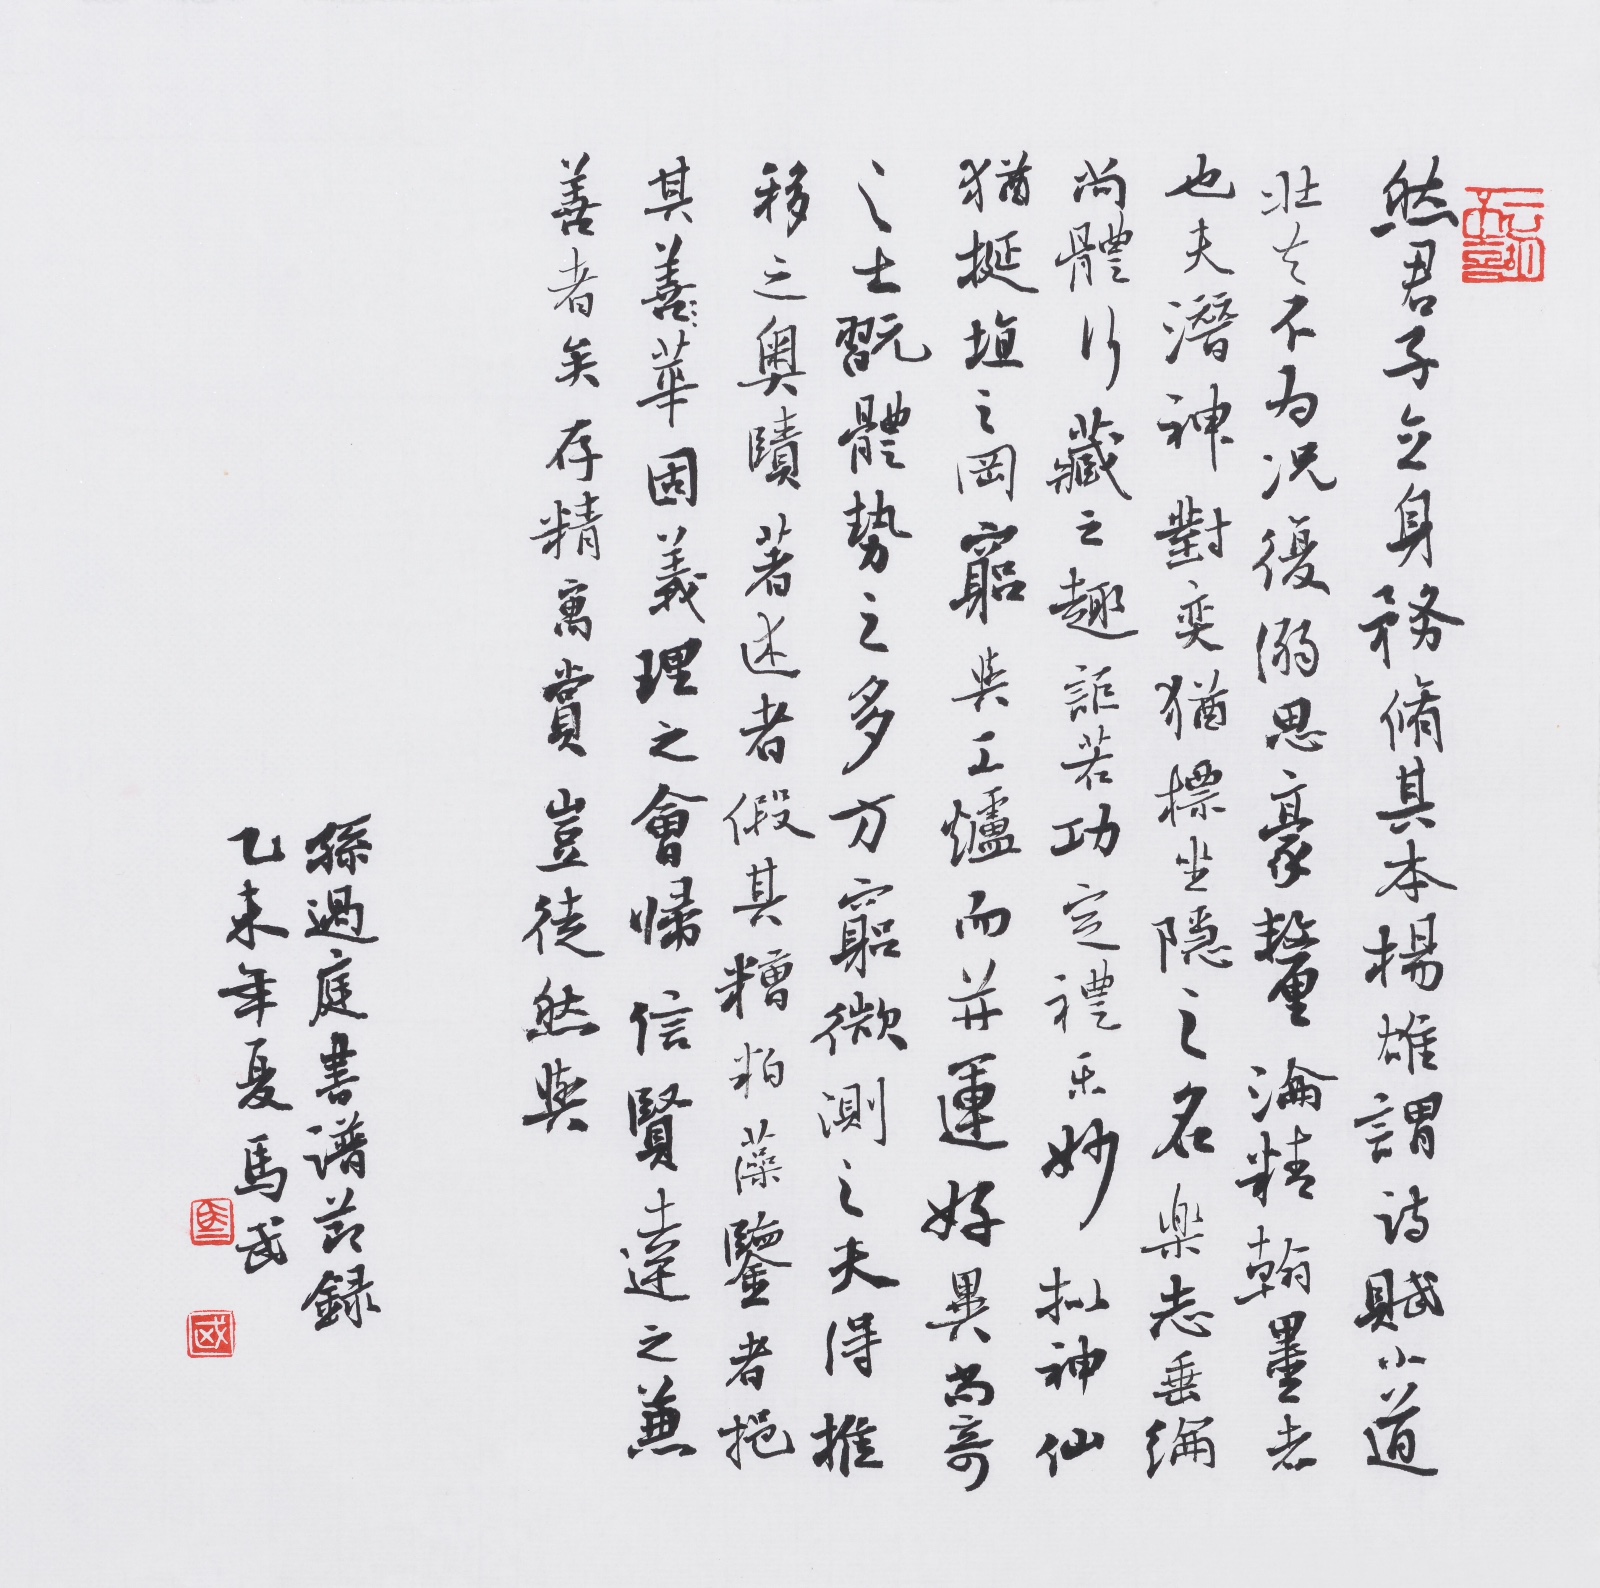 然君子立身務脩其本揚雄謂詩賦小道
壯夫不為況復溺思豪氂淪精翰墨者
也夫潛神對奕猶標坐隱之名樂志垂綸
尚體行藏之趣詎若功定禮樂妙拟神仙
猶挻埴之罔窮與工爐而并運好異尚奇
之士翫體勢之多方窮微測之夫得推
移之奧賾著述者假其糟粕藻鑒者挹
其菁華固義理之會歸信賢達之兼
善者矣存精寓賞豈徒然與
孫過庭書譜節錄
乙未年夏馬武